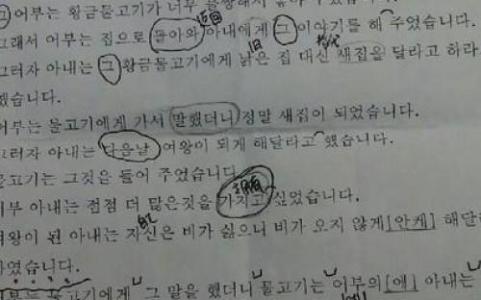 그 어부는 황금물고기가 너무 불쌍해서
그래서 어부는 집으로 돌아와 아내에게 그 이야기를 해 주었습니다.
그러자 아내는 그 황금물고기에게 낡은 집 대신 새집을 달라고 하라
했습니다.
어부는 물고기에게 가서 말했더니 정말 새집이 되었습니다.
그러자 아내는 다음날 여왕이 되게 해달라고 했습니다.
물고기는 그것을 들어 주었습니다.
어부 아내는 점점 더 많은것을 가지고 싶었습니다.
여왕이 된 아내는 자신은 비가 싫으니 비가 오지 않게[안케] 해달
하였습니다.
어부는 물고기에게 그 말을 했더니 물고기는 어부의[에] 아내는